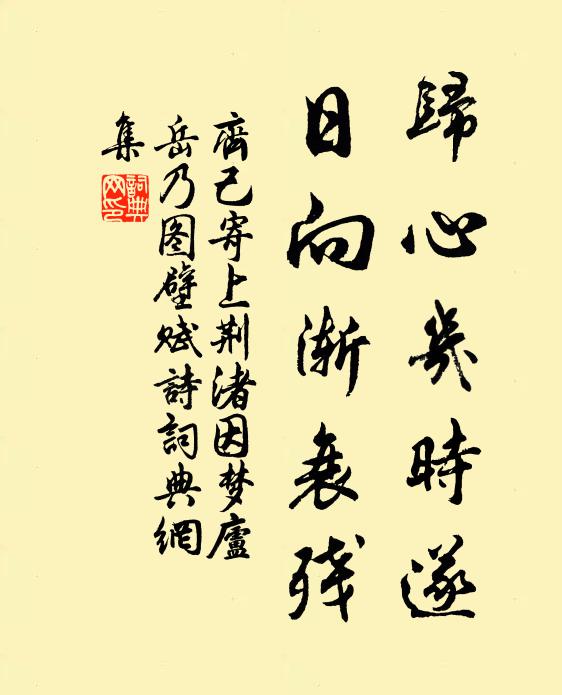 歸心幾時遂
日向漸衰残
齊己寄上荆渚因梦廬
岳乃图壁赋詩詞典網
集
詞典網印